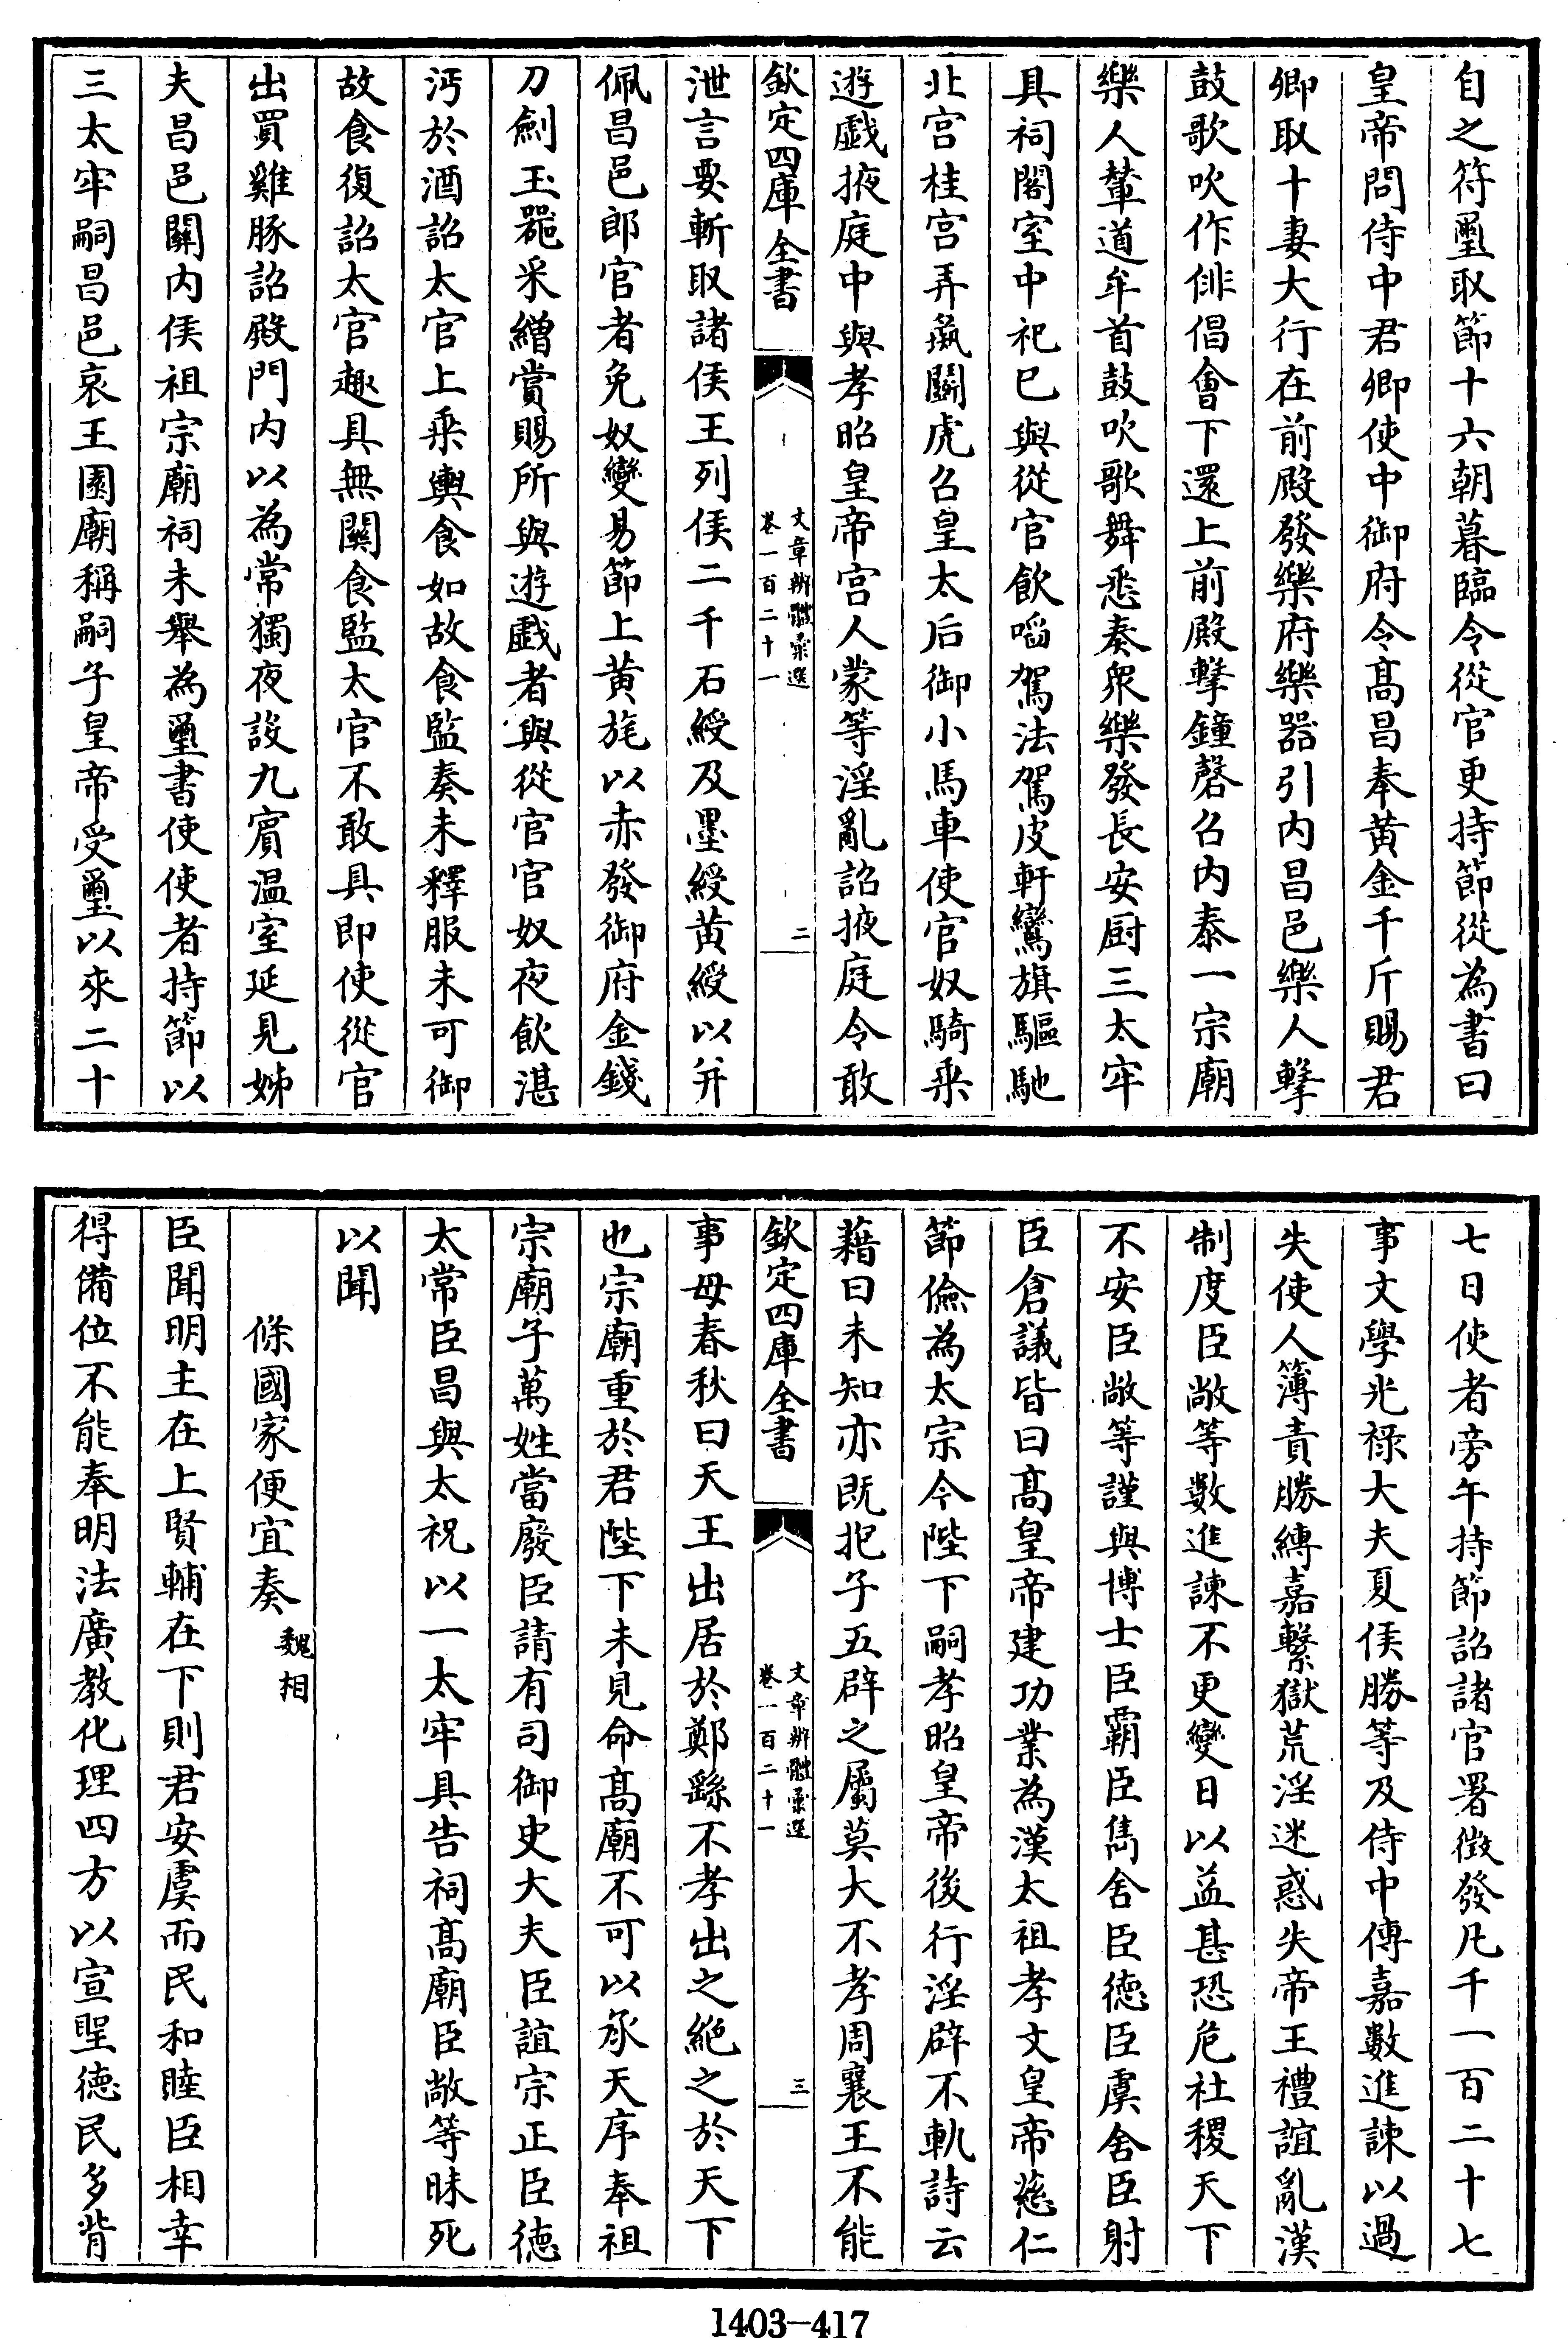 自之符璽取節十六朝暮臨令從官更持節從為書曰
皇帝問侍中君卿使中御府令髙昌奉黄金千斤賜君
卿取十妻大行在前殿發樂府樂器引内昌邑樂人擊
鼓歌吹作俳倡會下還上前殿擊鐘磬召内泰一宗廟
樂人輦道牟首鼓吹歌舞悉奏衆樂發長安厨三太牢
具祠閣室中祀已與從官飲㗖駕法駕皮軒鸞旗驅馳
北宫桂宫弄彘鬭虎召皇太后御小馬車使官奴騎乗
遊戲掖庭中與孝昭皇帝宫人蒙等淫亂詔掖庭令敢
欽定四庫全書
文章辨體彙選
卷一百二十一
二
泄言要斬取諸侯王列侯二千石綬及墨綬黄綬以并
佩昌邑郎官者免奴變易節上黄旄以赤發御府金錢
刀劍玉器采繒賞賜所與遊戲者與從官官奴夜飲湛
沔於酒詔太官上乗輿食如故食監奏未釋服未可御
故食復詔太官趣具無關食監太官不敢具即使從官
出買雞豚詔殿門内以為常獨夜設九賔温室延見姊
夫昌邑關内侯祖宗廟祠未舉為璽書使使者持節以
三太牢嗣昌邑哀王園廟稱嗣子皇帝受璽以來二十
七日使者旁午持節詔諸官署徴發凡千一百二十七
事文學光祿大夫夏侯勝等及侍中傅嘉數進諫以過
失使人簿責勝縛嘉繫獄荒淫迷惑失帝王禮誼亂漢
制度臣敞等數進諫不更變日以益甚恐危社稷天下
不安臣敞等謹與博士臣霸臣雋舍臣徳臣虞舍臣射
臣倉議皆曰髙皇帝建功業為漢太祖孝文皇帝慈仁
節儉為太宗今陛下嗣孝昭皇帝後行淫辟不軌詩云
藉曰未知亦既抱子五辟之屬莫大不孝周襄王不能
欽定四庫全書
文章辨體彙選
卷一百二十一
三
事母春秋曰天王出居於鄭繇不孝出之絶之於天下
也宗廟重於君陛下未見命髙廟不可以承天序奉祖
宗廟子萬姓當廢臣請有司御史大夫臣誼宗正臣徳
太常臣昌與太祝以一太牢具告祠髙廟臣敞等昧死
以聞
條國家便宜奏 魏相
臣聞明主在上賢輔在下則君安虞而民和睦臣相幸
得備位不能奉明法廣教化理四方以宣聖徳民多背
1403-417